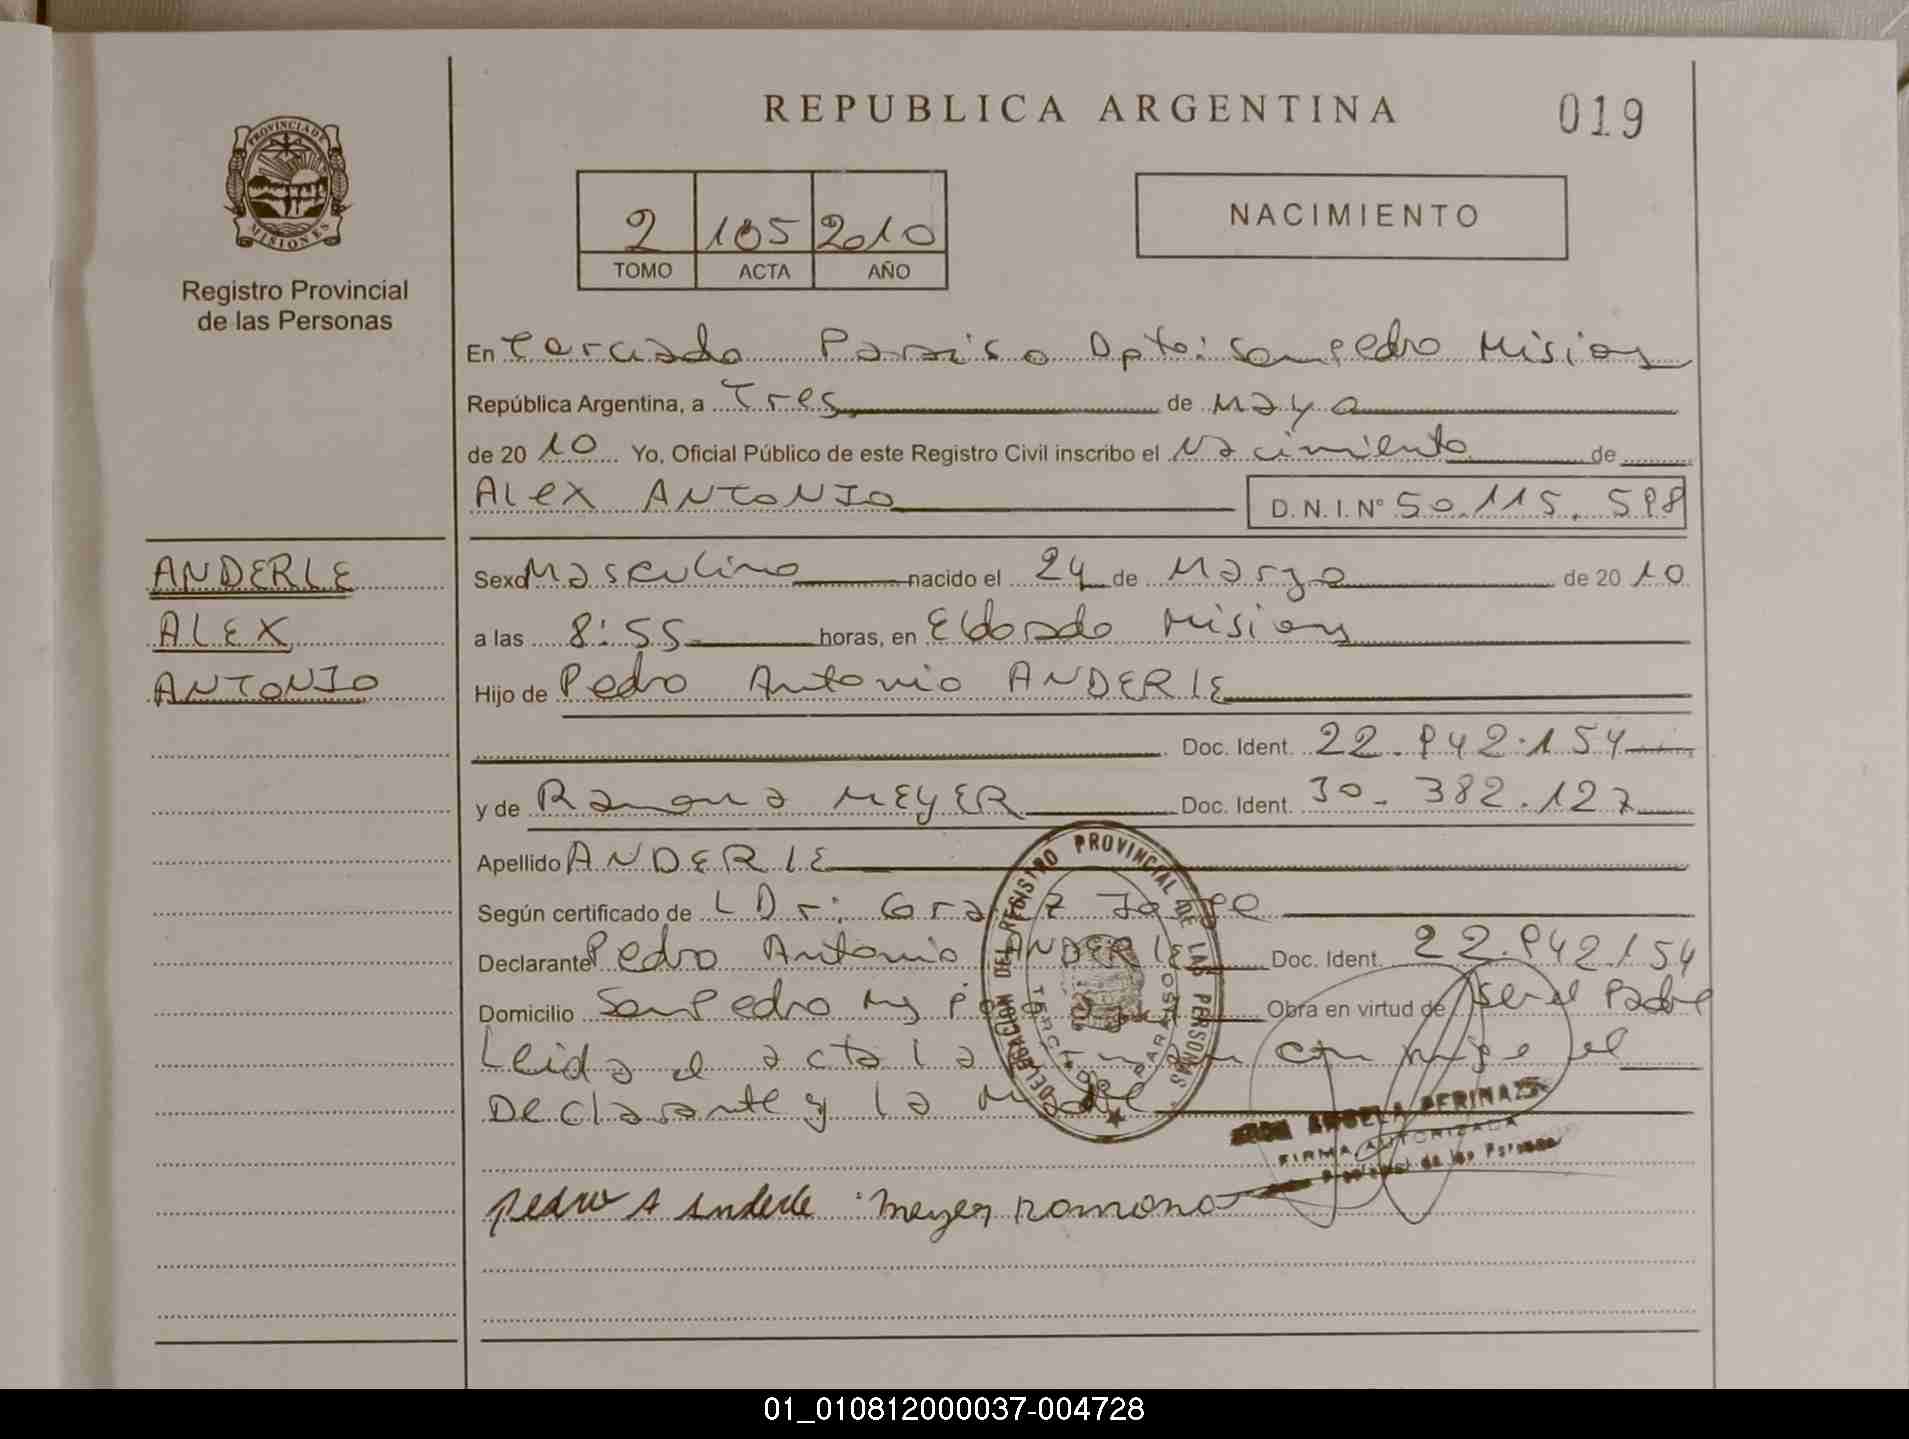 REPUBLICA ARGENTINA
019
PROVINCIA DE
MISIONES
Registro Provincial
de las Personas
2 105 2010
TOMO ACTA AÑO
NACIMIENTO
En Terciado Paraiso Dpto: San Pedro Misiones
República Argentina, a Tres de Mayo
de 2010 Yo, Oficial Público de este Registro Civil inscribo el Nacimiento de
Alex ANTONIO D.N.I. Nº 50.115.598
ANDERLE
ALEX
ANTONIO
Sexo Masculino nacido el 24 de Marzo de 2010
a las 8:55 horas, en Eldorado Misiones
Hijo de Pedro Antonio ANDERLE
Doc. Ident. 22.942.154
y de Ramona MEYER Doc. Ident. 30.382.127
Apellido ANDERLE
Según certificado de L Dr:
Declarante Pedro Antonio ANDERLE Doc. Ident. 22.942.154
Domicilio San Pedro Obra en virtud de ser el Padre
Leida el acta la con migo el
Declarante y la Madre
DELEGACION DEL REGISTRO PROVINCIAL DE LAS PERSONAS
TERCIADO PARAISO
FIRMA AUTORIZADA
Provincial de las Personas
Pedro A Anderle Meyer Ramona
01_010812000037-004728